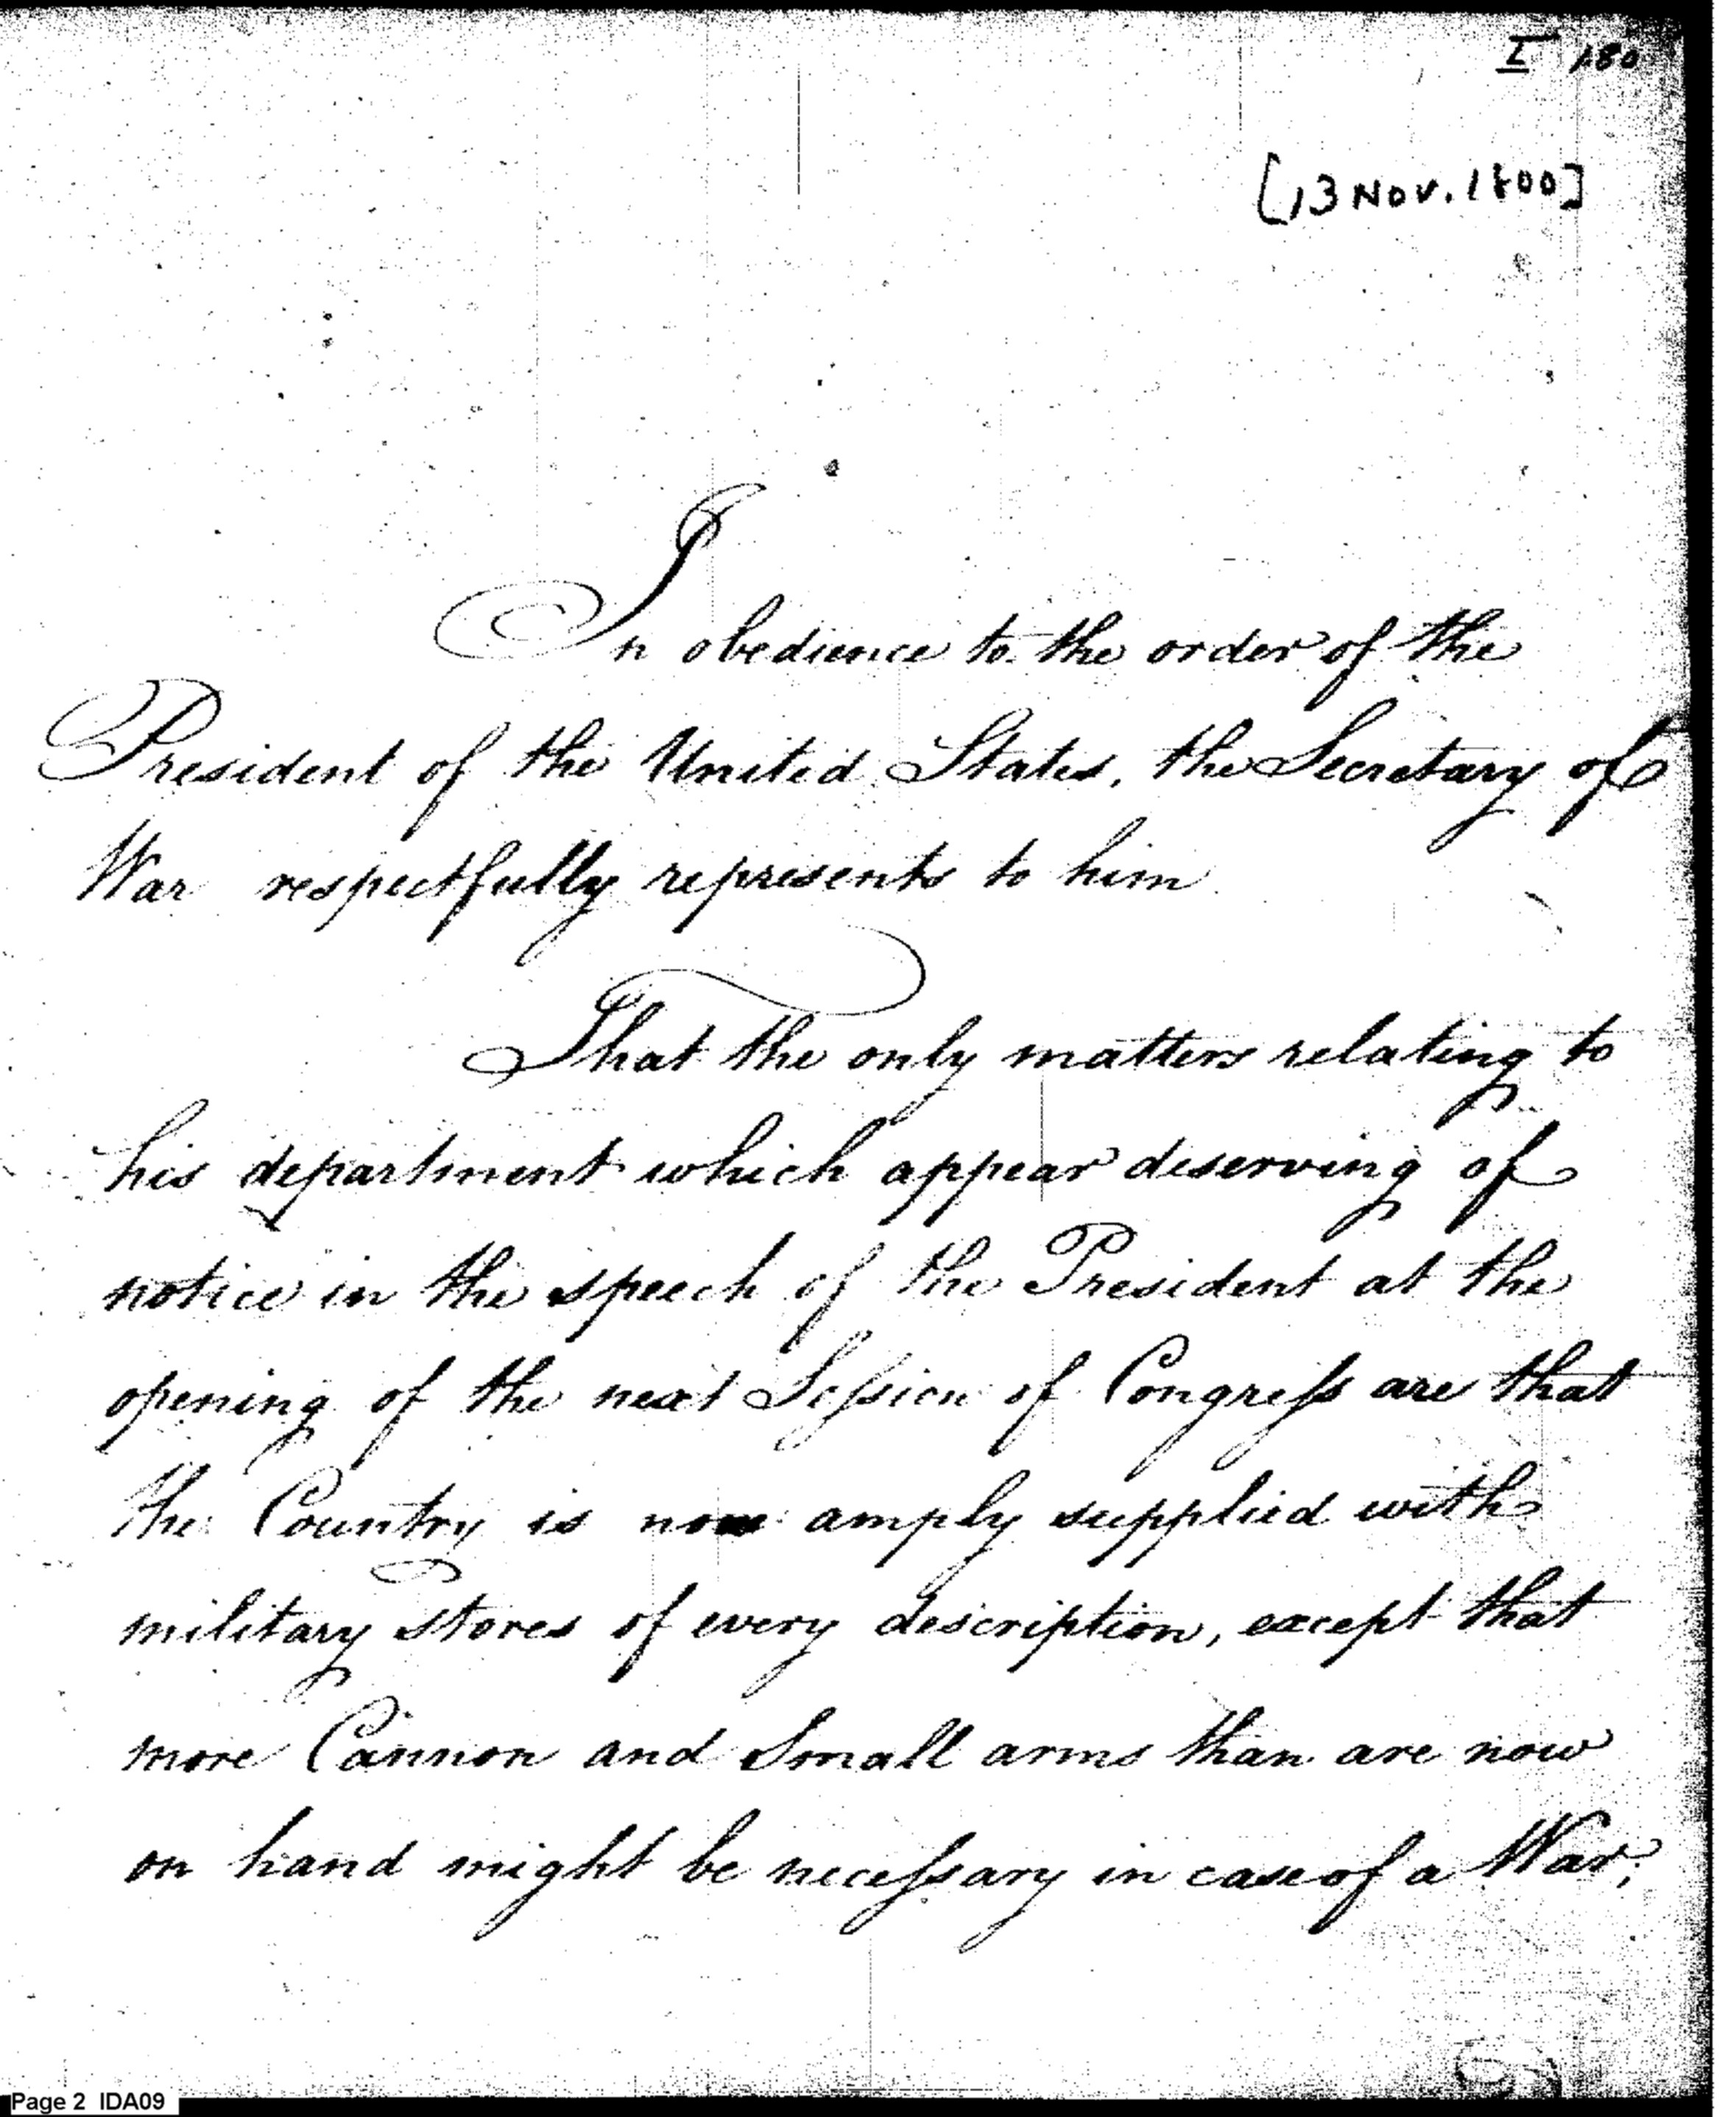 I 180
[13 Nov. 1800]
In obedience to the order of the
President of the United States, the Secretary of
War respectfully represents to him
That the only matters relating to
his department which appear deserving of
notice in the speech of the President at the
opening of the next Session of Congress are that
the Country is now amply supplied with
military stores of every description, except that
more Cannon and Small arms than are now
on hand might be necessary in case of a War;
Page 2 IDA09